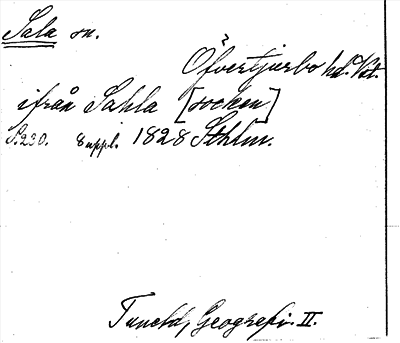 Sala sn.
Öfvertjurbo hd. Vst.
ifrån Sahla [socken]
S. 230. 8 uppl. 1828 Sthlm.
Tuneld, Geografi. II.